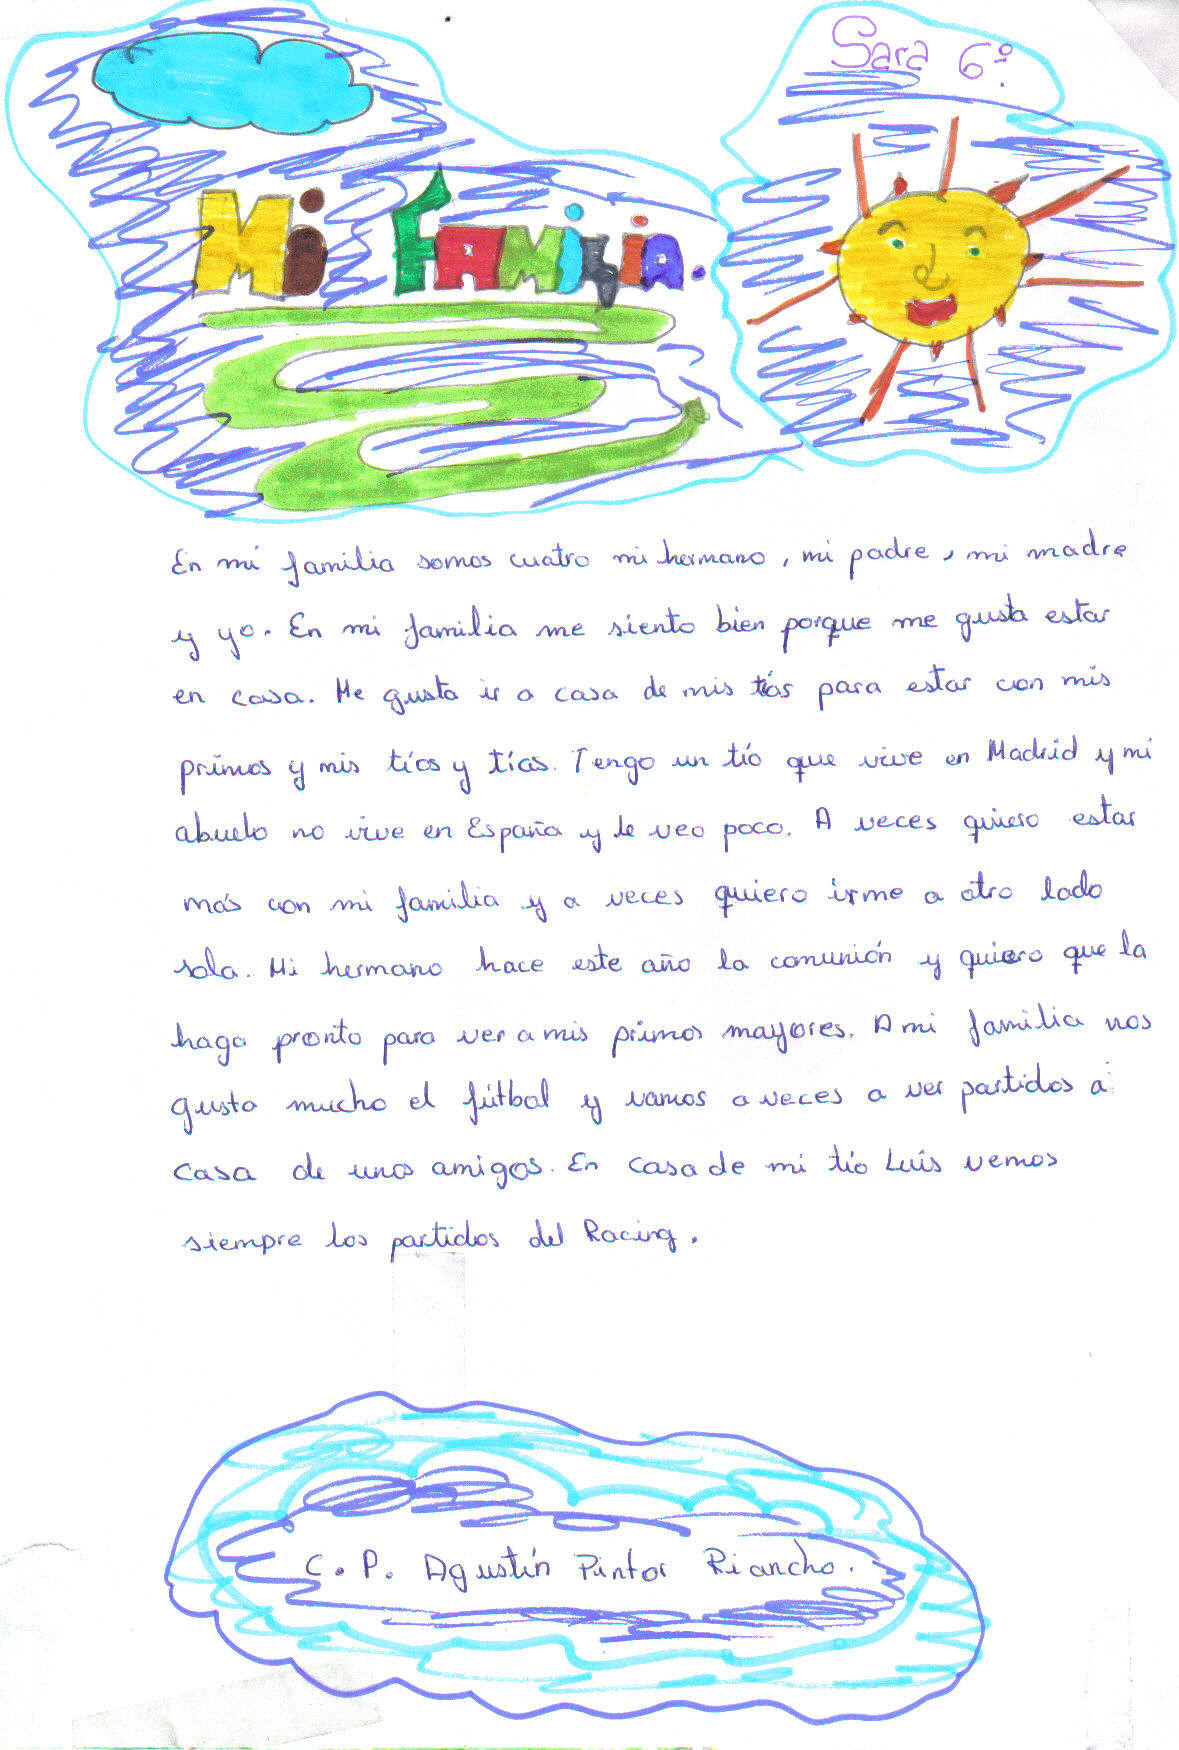 Sara 6º.
Mi Familia.
En mi familia somos cuatro mi hermano, mi padre, mi madre
y yo. En mi familia me siento bien porque me gusta estar
en casa. Me gusta ir a casa de mis tías para estar con mis
primos y mis tíos y tías. Tengo un tío que vive en Madrid y mi
abuelo no vive en España y le veo poco. A veces quiero estar
más con mi familia y a veces quiero irme a otro lado
sola. Mi hermano hace este año la comunión y quiero que la
haga pronto para ver a mis primos mayores. A mi familia nos
gusta mucho el fútbol y vamos a veces a ver partidos a
casa de unos amigos. En casa de mi tío Luis vemos
siempre los partidos del Racing.
C.P. Agustín Pintor Riancho.